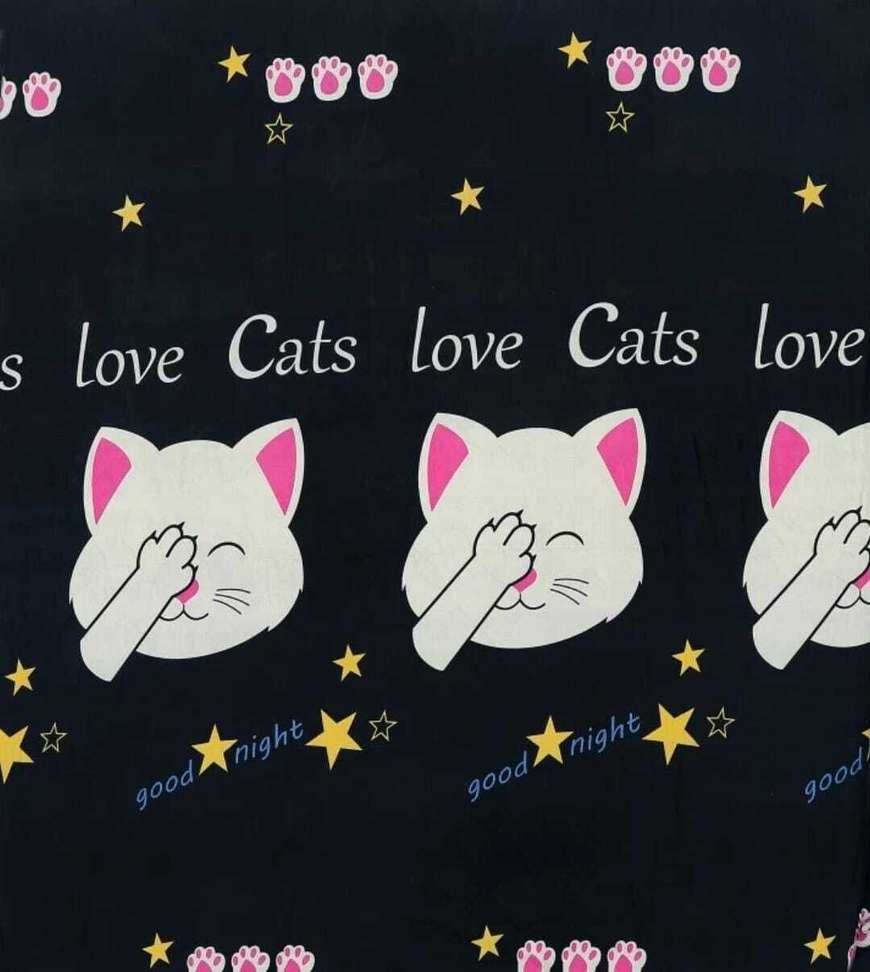 s love Cats love Cats love
good night good night good